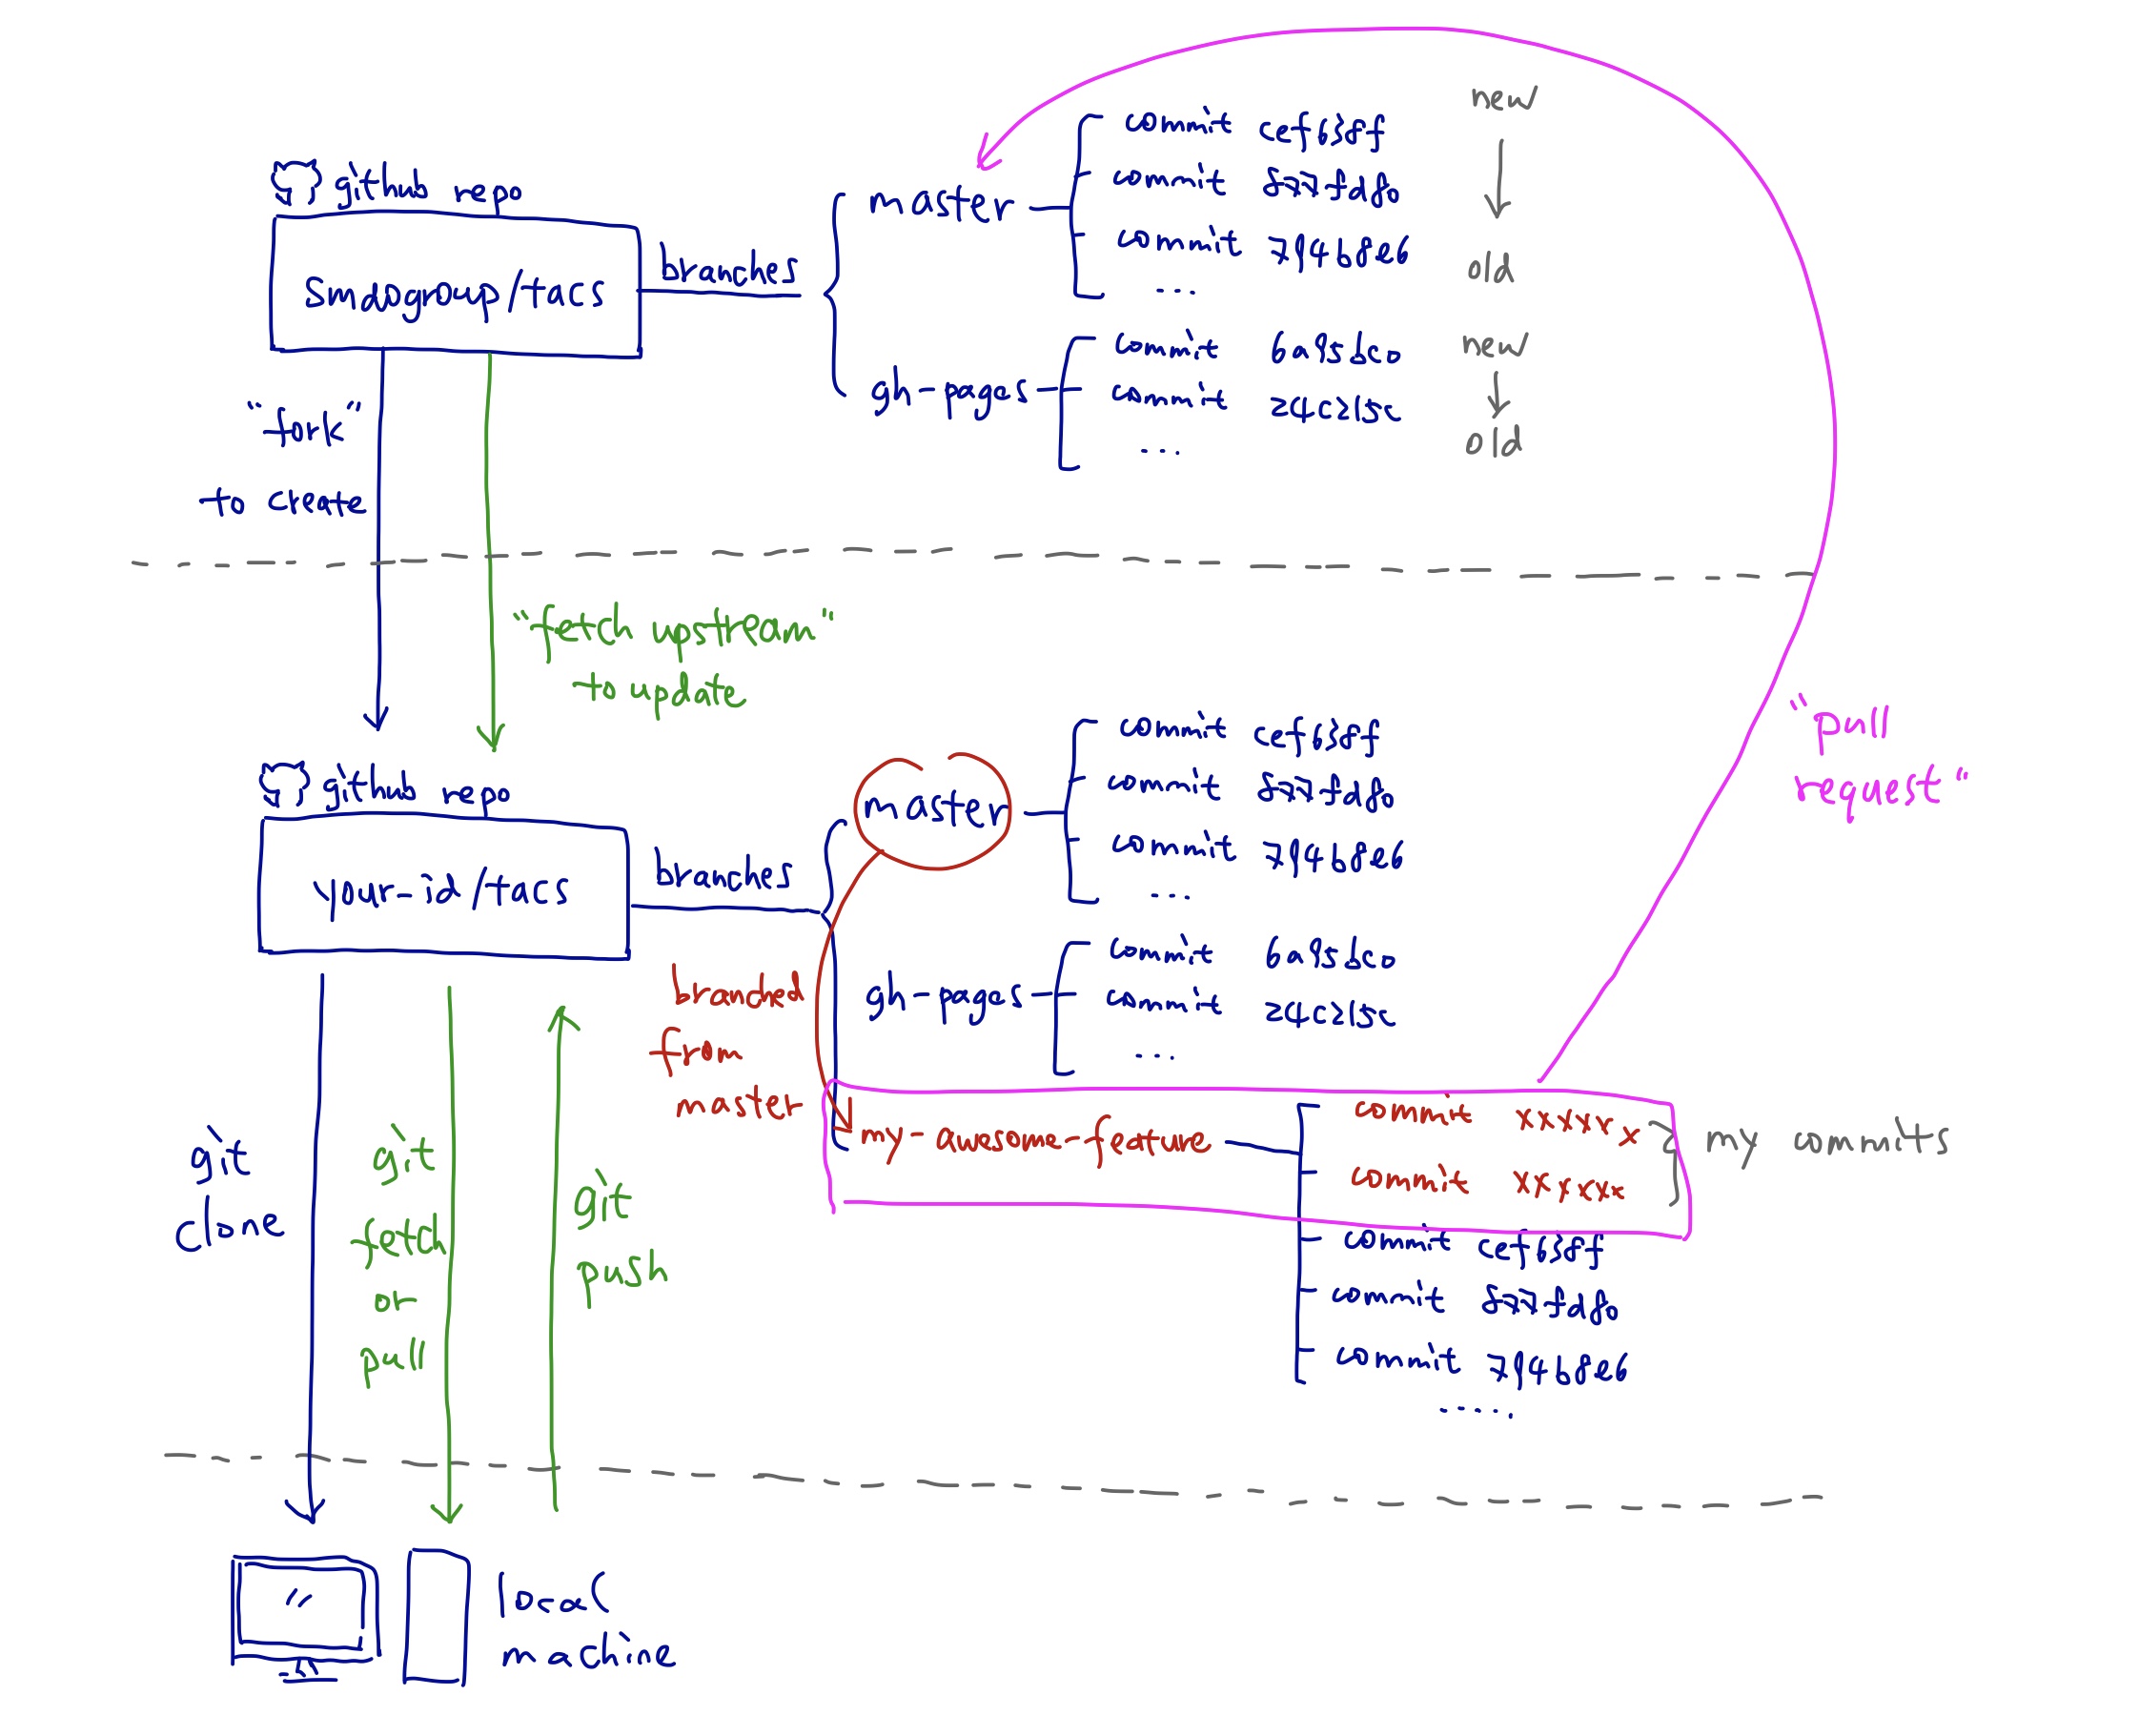 github repo
smdogroup/tacs
branches
master
commit cef638ff
commit 877fd80
commit 794b8e6
...
new
old
gh-pages
commit 6a95bc0
commit 24c215c
...
new
old
"fork"
to create
"fetch upstream"
to update
"pull
request"
github repo
your-id/tacs
branches
master
commit cef638ff
commit 877fd80
commit 794b8e6
...
gh-pages
commit 6a95bc0
commit 24c215c
...
branched
from
master
my-awesome-feature
commit xxxxxx
commit xxxxxx
my commits
commit cef638ff
commit 877fd80
commit 794b8e6
.....
git
clone
git
fetch
or
pull
git
push
local
machine